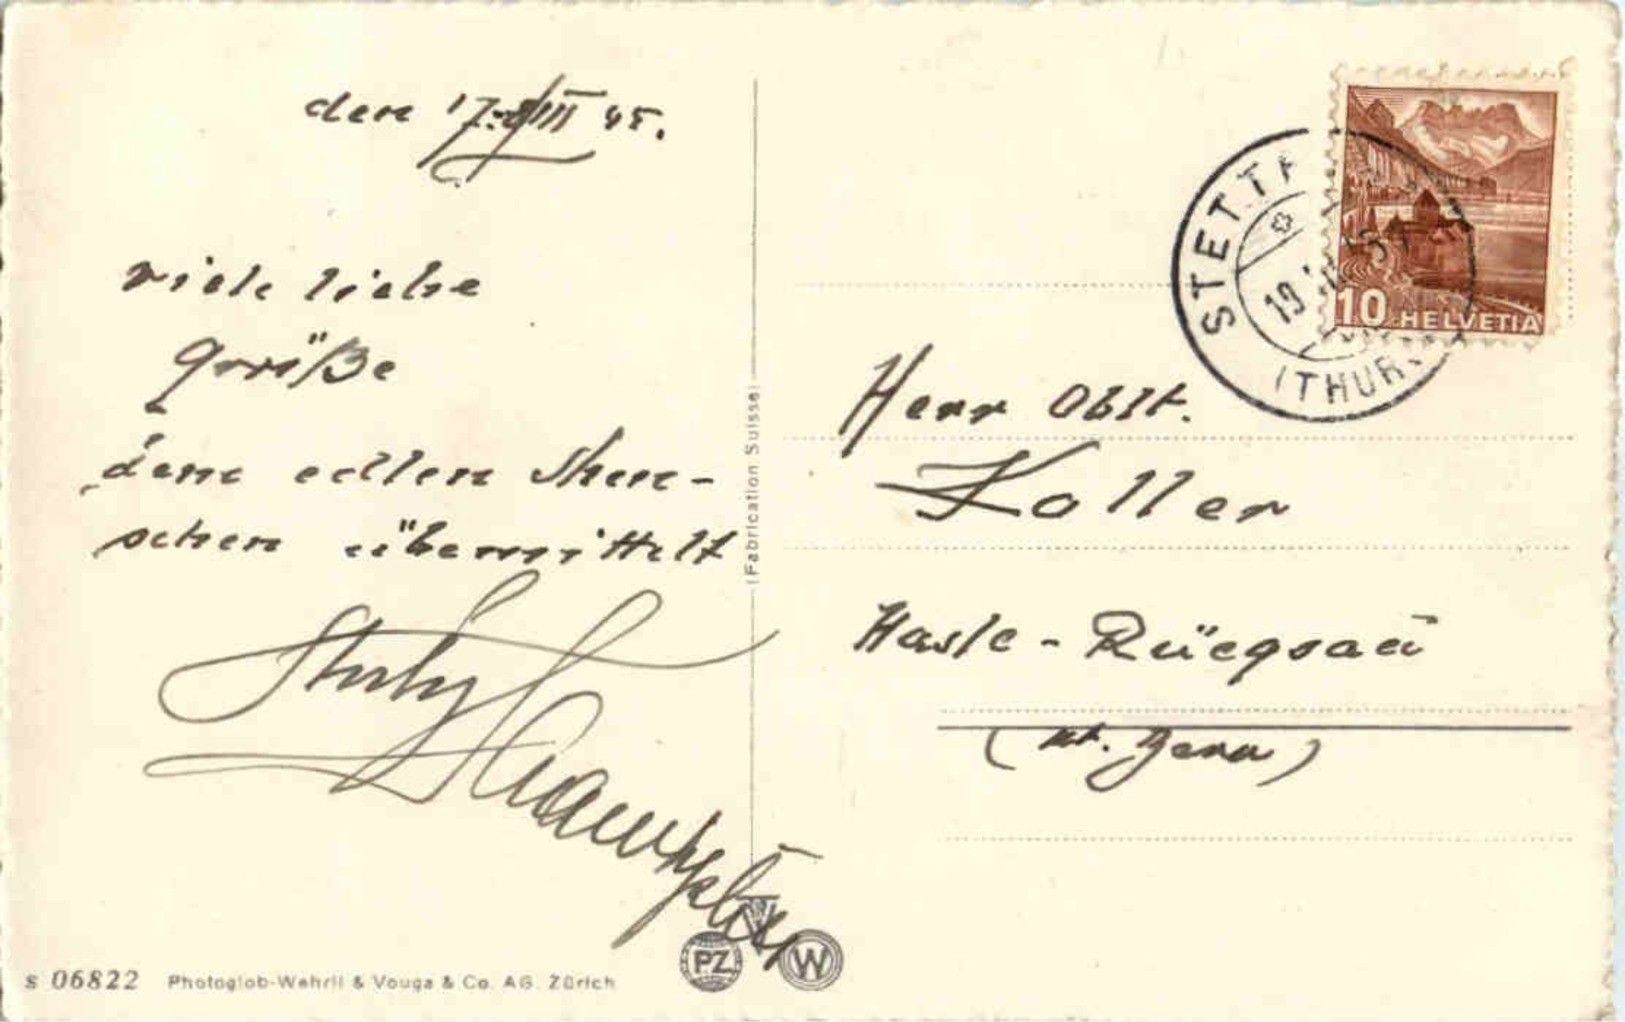 den 17. VIII 45.
viele liebe
Grüße
dem edlen Men-
schen übermittelt
(Fabrication Suisse)
STETTF
19
(THUR
10 HELVETIA
Herr Oblt.
Koller
Hasle - Rüegsau
(kt. Bern)
s 06822 Photoglob-Wehrli & Vouga & Co. AG. Zürich
PZ
W